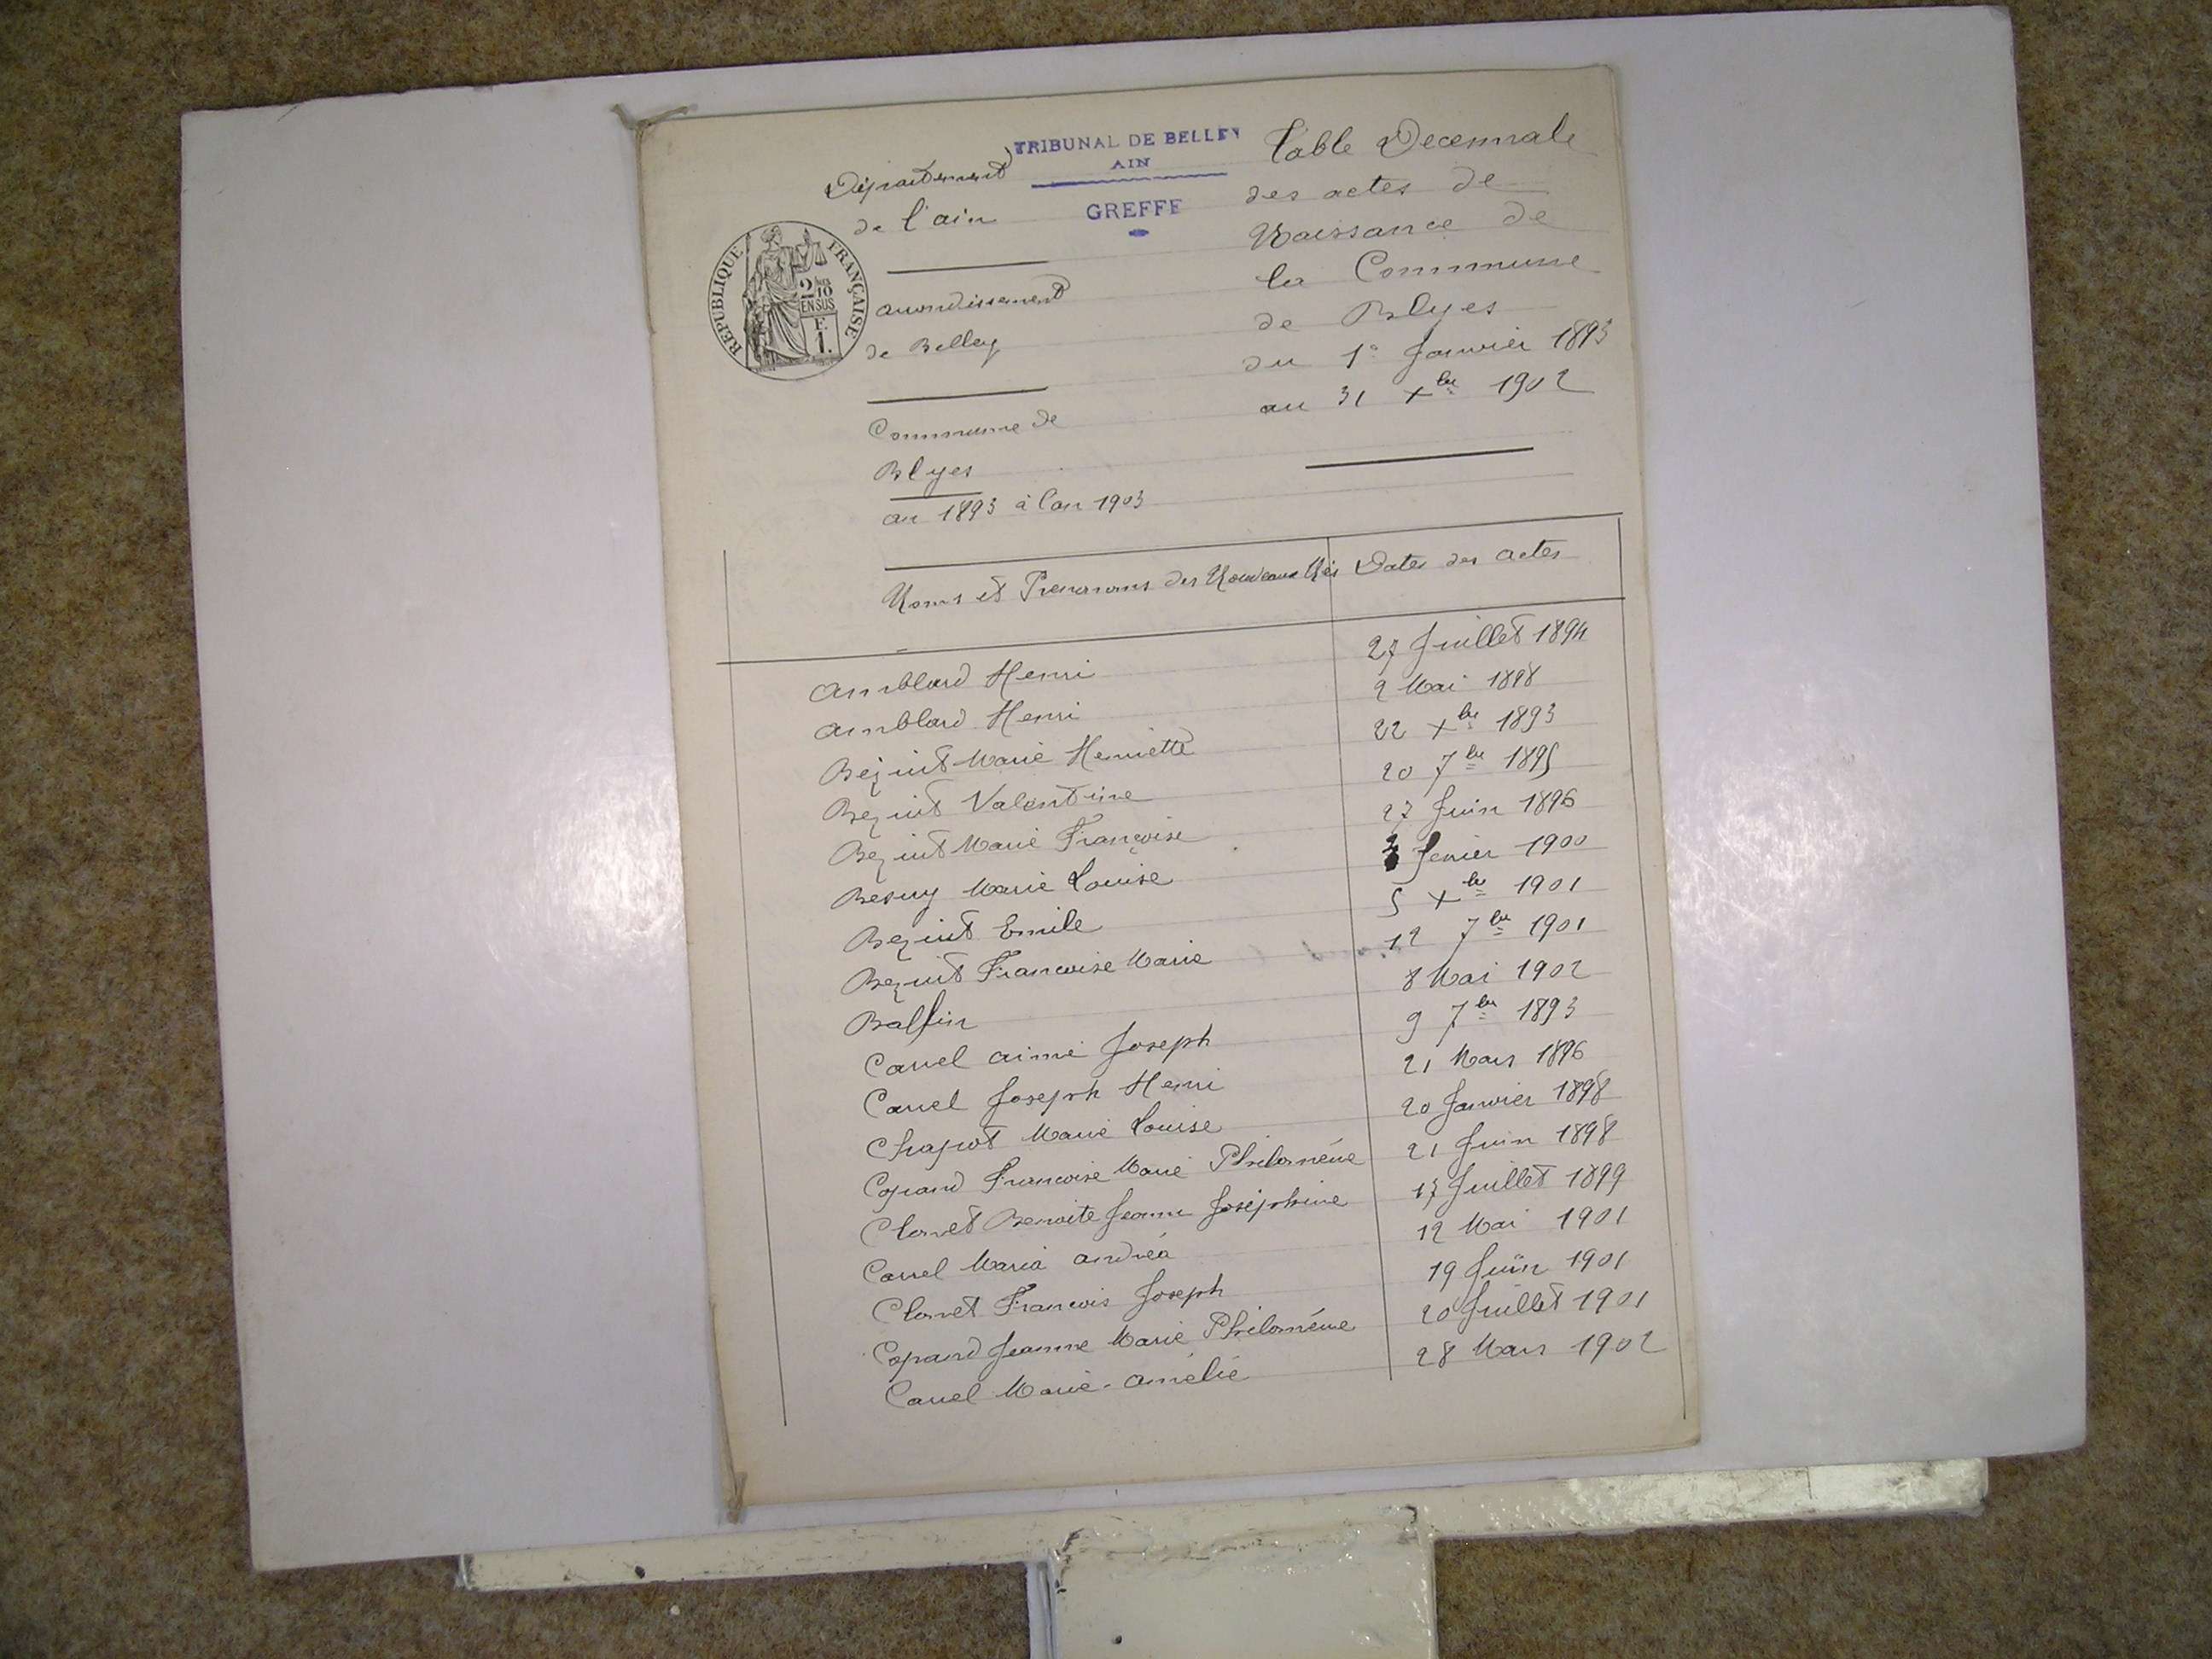 TRIBUNAL DE BELLEY
AIN
GREFFE
Département
de l'ain
REPUBLIQUE FRANÇAISE
2/10
EN SUS
F.
1.
arrondissement
de Belley
Commune de
Blyes
an 1893 à l'an 1903
Table Decennale
des actes de
Naissance de
la Commune
de Blyes
du 1º Janvier 1893
au 31 Xbre 1902
Noms et Prenoms des Nouveaux Nés Dates des actes
Amblard Henri 27 Juillet 1894
Amblard Henri 2 Mai 1898
Bejuit Marie Henriette 22 Xbre 1893
Bejuit Valentine 20 7bre 1895
Bejuit Marie Françoise 27 Juin 1896
Marie Louise fevrier 1900
Bejuit Emile 5 Xbre 1901
Bejuit Francoise Marie 12 7bre 1901
Balfin 8 Mai 1902
Carrel aimé Joseph 9 7bre 1893
Carrel Joseph Henri 21 Mars 1896
Chapot Marie Louise 20 Janvier 1898
Copard Francoise Marie Philoméne 21 Juin 1898
Clonet Benoite Jeanne Joséphine 17 Juillet 1899
Carrel Maria andréa 12 Mai 1901
Clonet Francois Joseph 19 Juin 1901
Copard Jeanne Marie Philoméne 20 Juillet 1901
Carrel Marie-amélie 28 Mars 1902